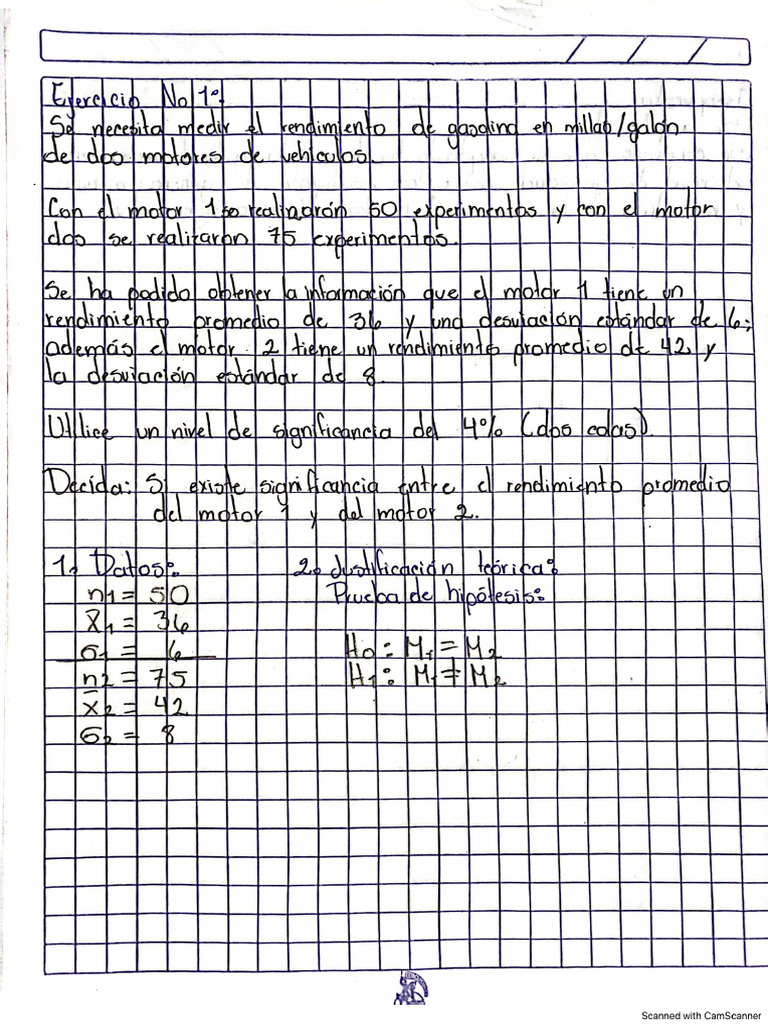 Ejercicio No 1°:
Se necesita medir el rendimiento de gasolina en millas/galón
de dos motores de vehículos.
Con el motor 1 se realizarón 50 experimentos y con el motor
dos se realizarón 75 experimentos.
Se ha podido obtener la información que el motor 1 tiene un
rendimiento promedio de 36 y una desviación estándar de 6;
además el motor 2 tiene un rendimiento promedio de 42 y
la desviación estándar de 8.
Utilice un nivel de significancia del 4% (dos colas).
Decida: Si existe significancia entre el rendimiento promedio
del motor 1 y del motor 2.
1. Datos:
n1 = 50
x̄1 = 36
σ1 = 6
n2 = 75
x̄2 = 42
σ2 = 8
2. Justificación teórica:
Prueba de hipótesis:
H0: M1 = M2
H1: M1 ≠ M2
Scanned with CamScanner